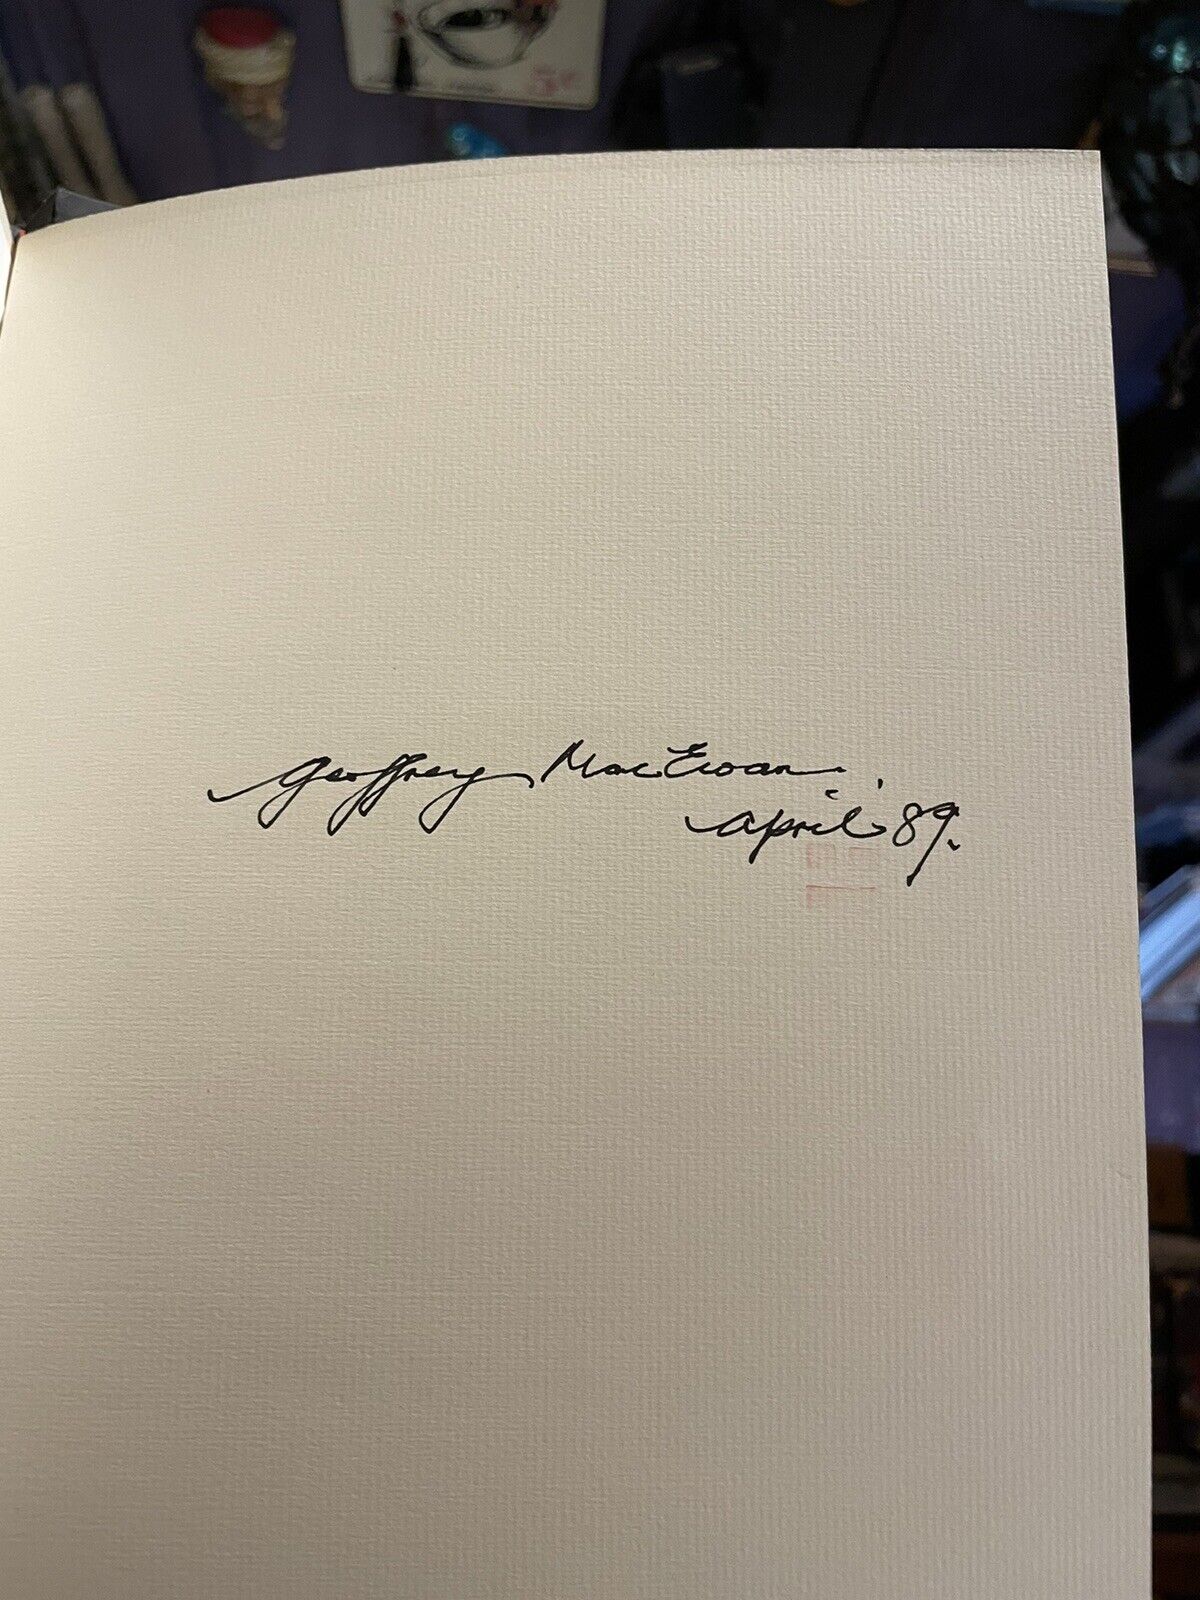 Geoffrey MacEwan.
April 89.